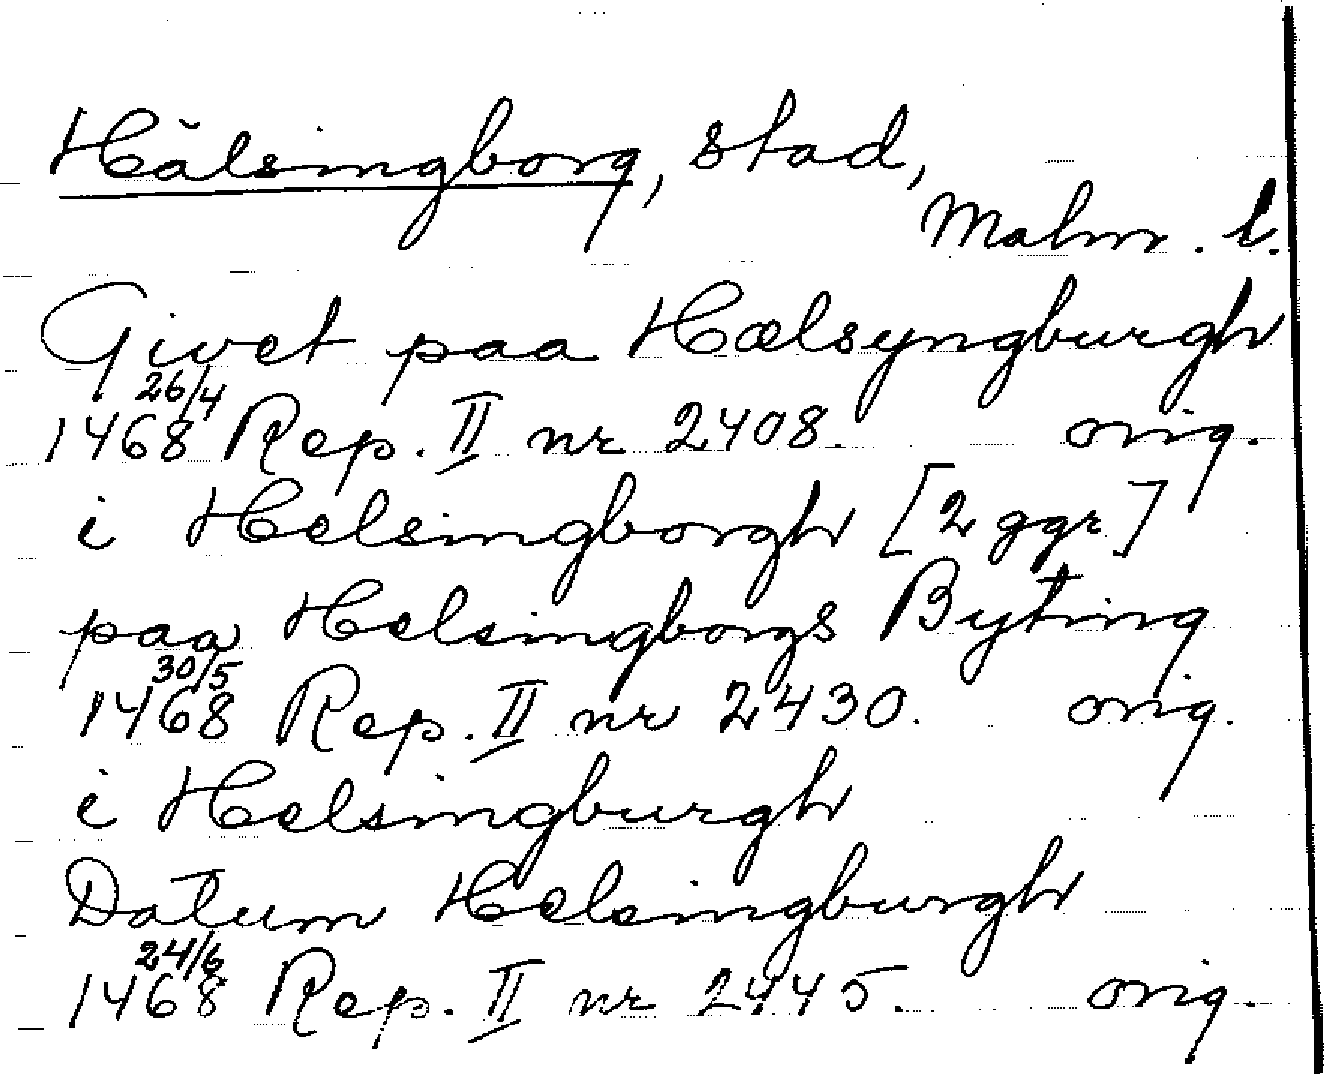 Hälsingborg, stad,
Malm. l.
Givet paa Hælsyngburgh
26/4
1468 Rep. II nr 2408. orig.
i Helsingborgh [2 ggr]
paa Helsingborgs Byting
30/5
1468 Rep. II nr 2430. orig.
i Helsingburgh
Datum Helsingburgh
24/6
1468 Rep. II nr 2445. orig.